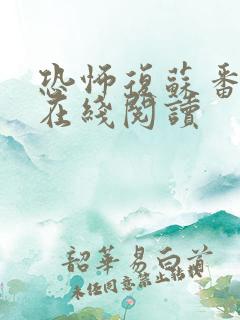 恐怖復蘇番
在綫閱讀
韶華易白首
未任同意禁止转载